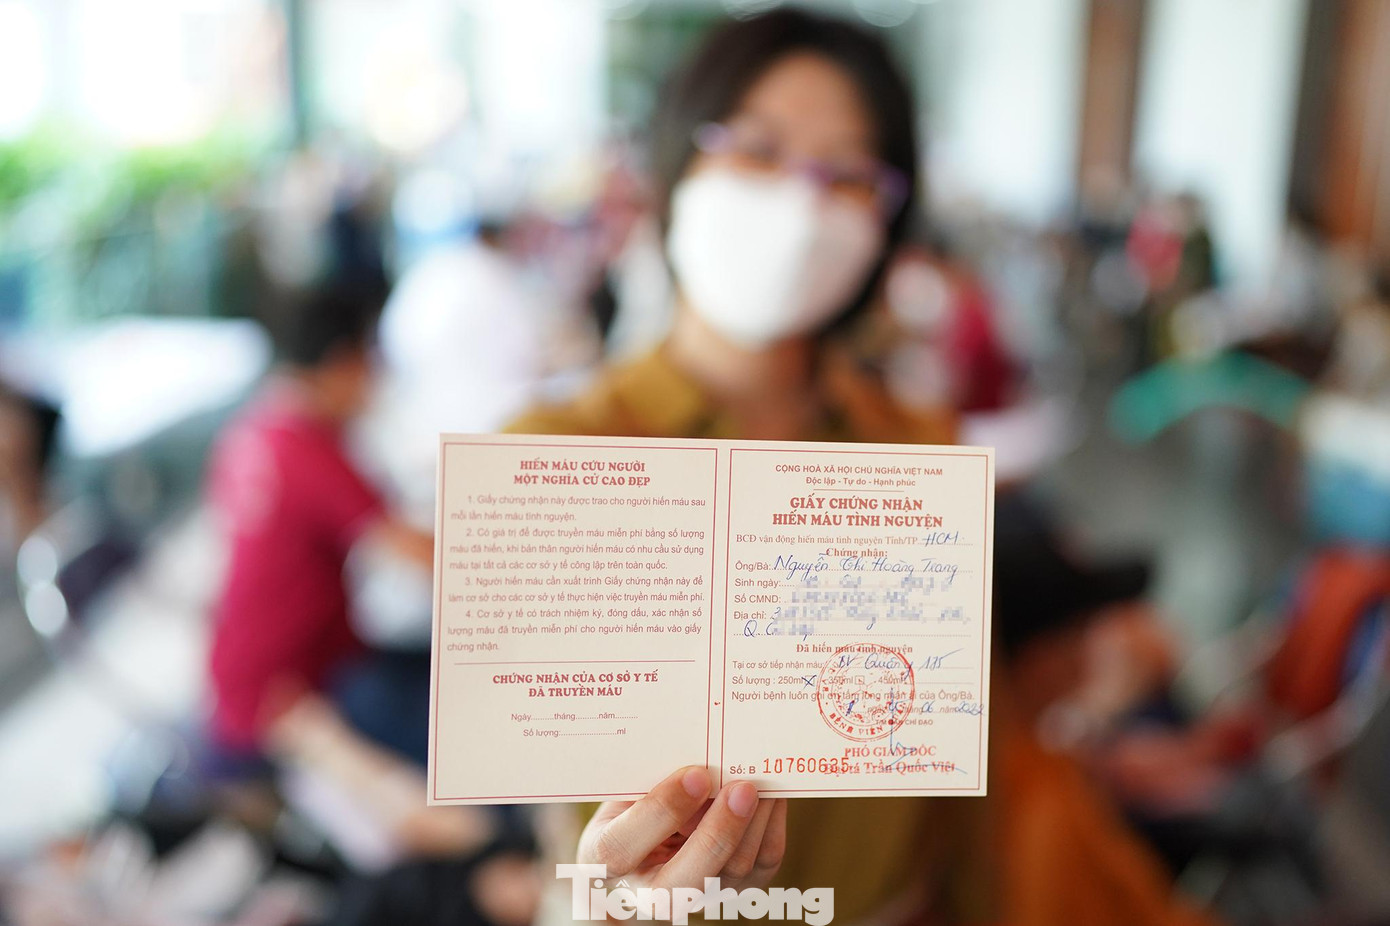 HIẾN MÁU CỨU NGƯỜI
MỘT NGHĨA CỬ CAO ĐẸP
1. Giấy chứng nhận này được trao cho người hiến máu sau
mỗi lần hiến máu tình nguyện.
2. Có giá trị để được truyền máu miễn phí bằng số lượng
máu đã hiến, khi bản thân người hiến máu có nhu cầu sử dụng
máu tại tất cả các cơ sở y tế công lập trên toàn quốc.
3. Người hiến máu cần xuất trình Giấy chứng nhận này để
làm cơ sở cho các cơ sở y tế thực hiện việc truyền máu miễn phí.
4. Cơ sở y tế có trách nhiệm ký, đóng dấu, xác nhận số
lượng máu đã truyền miễn phí cho người hiến máu vào giấy
chứng nhận.
CHỨNG NHẬN CỦA CƠ SỞ Y TẾ
ĐÃ TRUYỀN MÁU
Ngày.........tháng.........năm.........
Số lượng:......................ml
CỘNG HOÀ XÃ HỘI CHỦ NGHĨA VIỆT NAM
Độc lập - Tự do - Hạnh phúc
GIẤY CHỨNG NHẬN
HIẾN MÁU TÌNH NGUYỆN
BCĐ vận động hiến máu tình nguyện Tỉnh/TP HCM
Chứng nhận:
Ông/Bà: Nguyễn Thị Hoàng Trang
Sinh ngày:
Số CMND:
Địa chỉ:
Q.
Đã hiến máu tình nguyện
Tại cơ sở tiếp nhận máu: BV Quân y 175
Số lượng : 250ml 350ml 450ml
Người bệnh luôn ghi ơn tấm lòng nhân ái của Ông/Bà.
ngày tháng 06 năm 2022
BAN CHỈ ĐẠO
BỆNH VIỆN
PHÓ GIÁM ĐỐC
Số: B 10760635 Đại tá Trần Quốc Việt
Tiềnphong